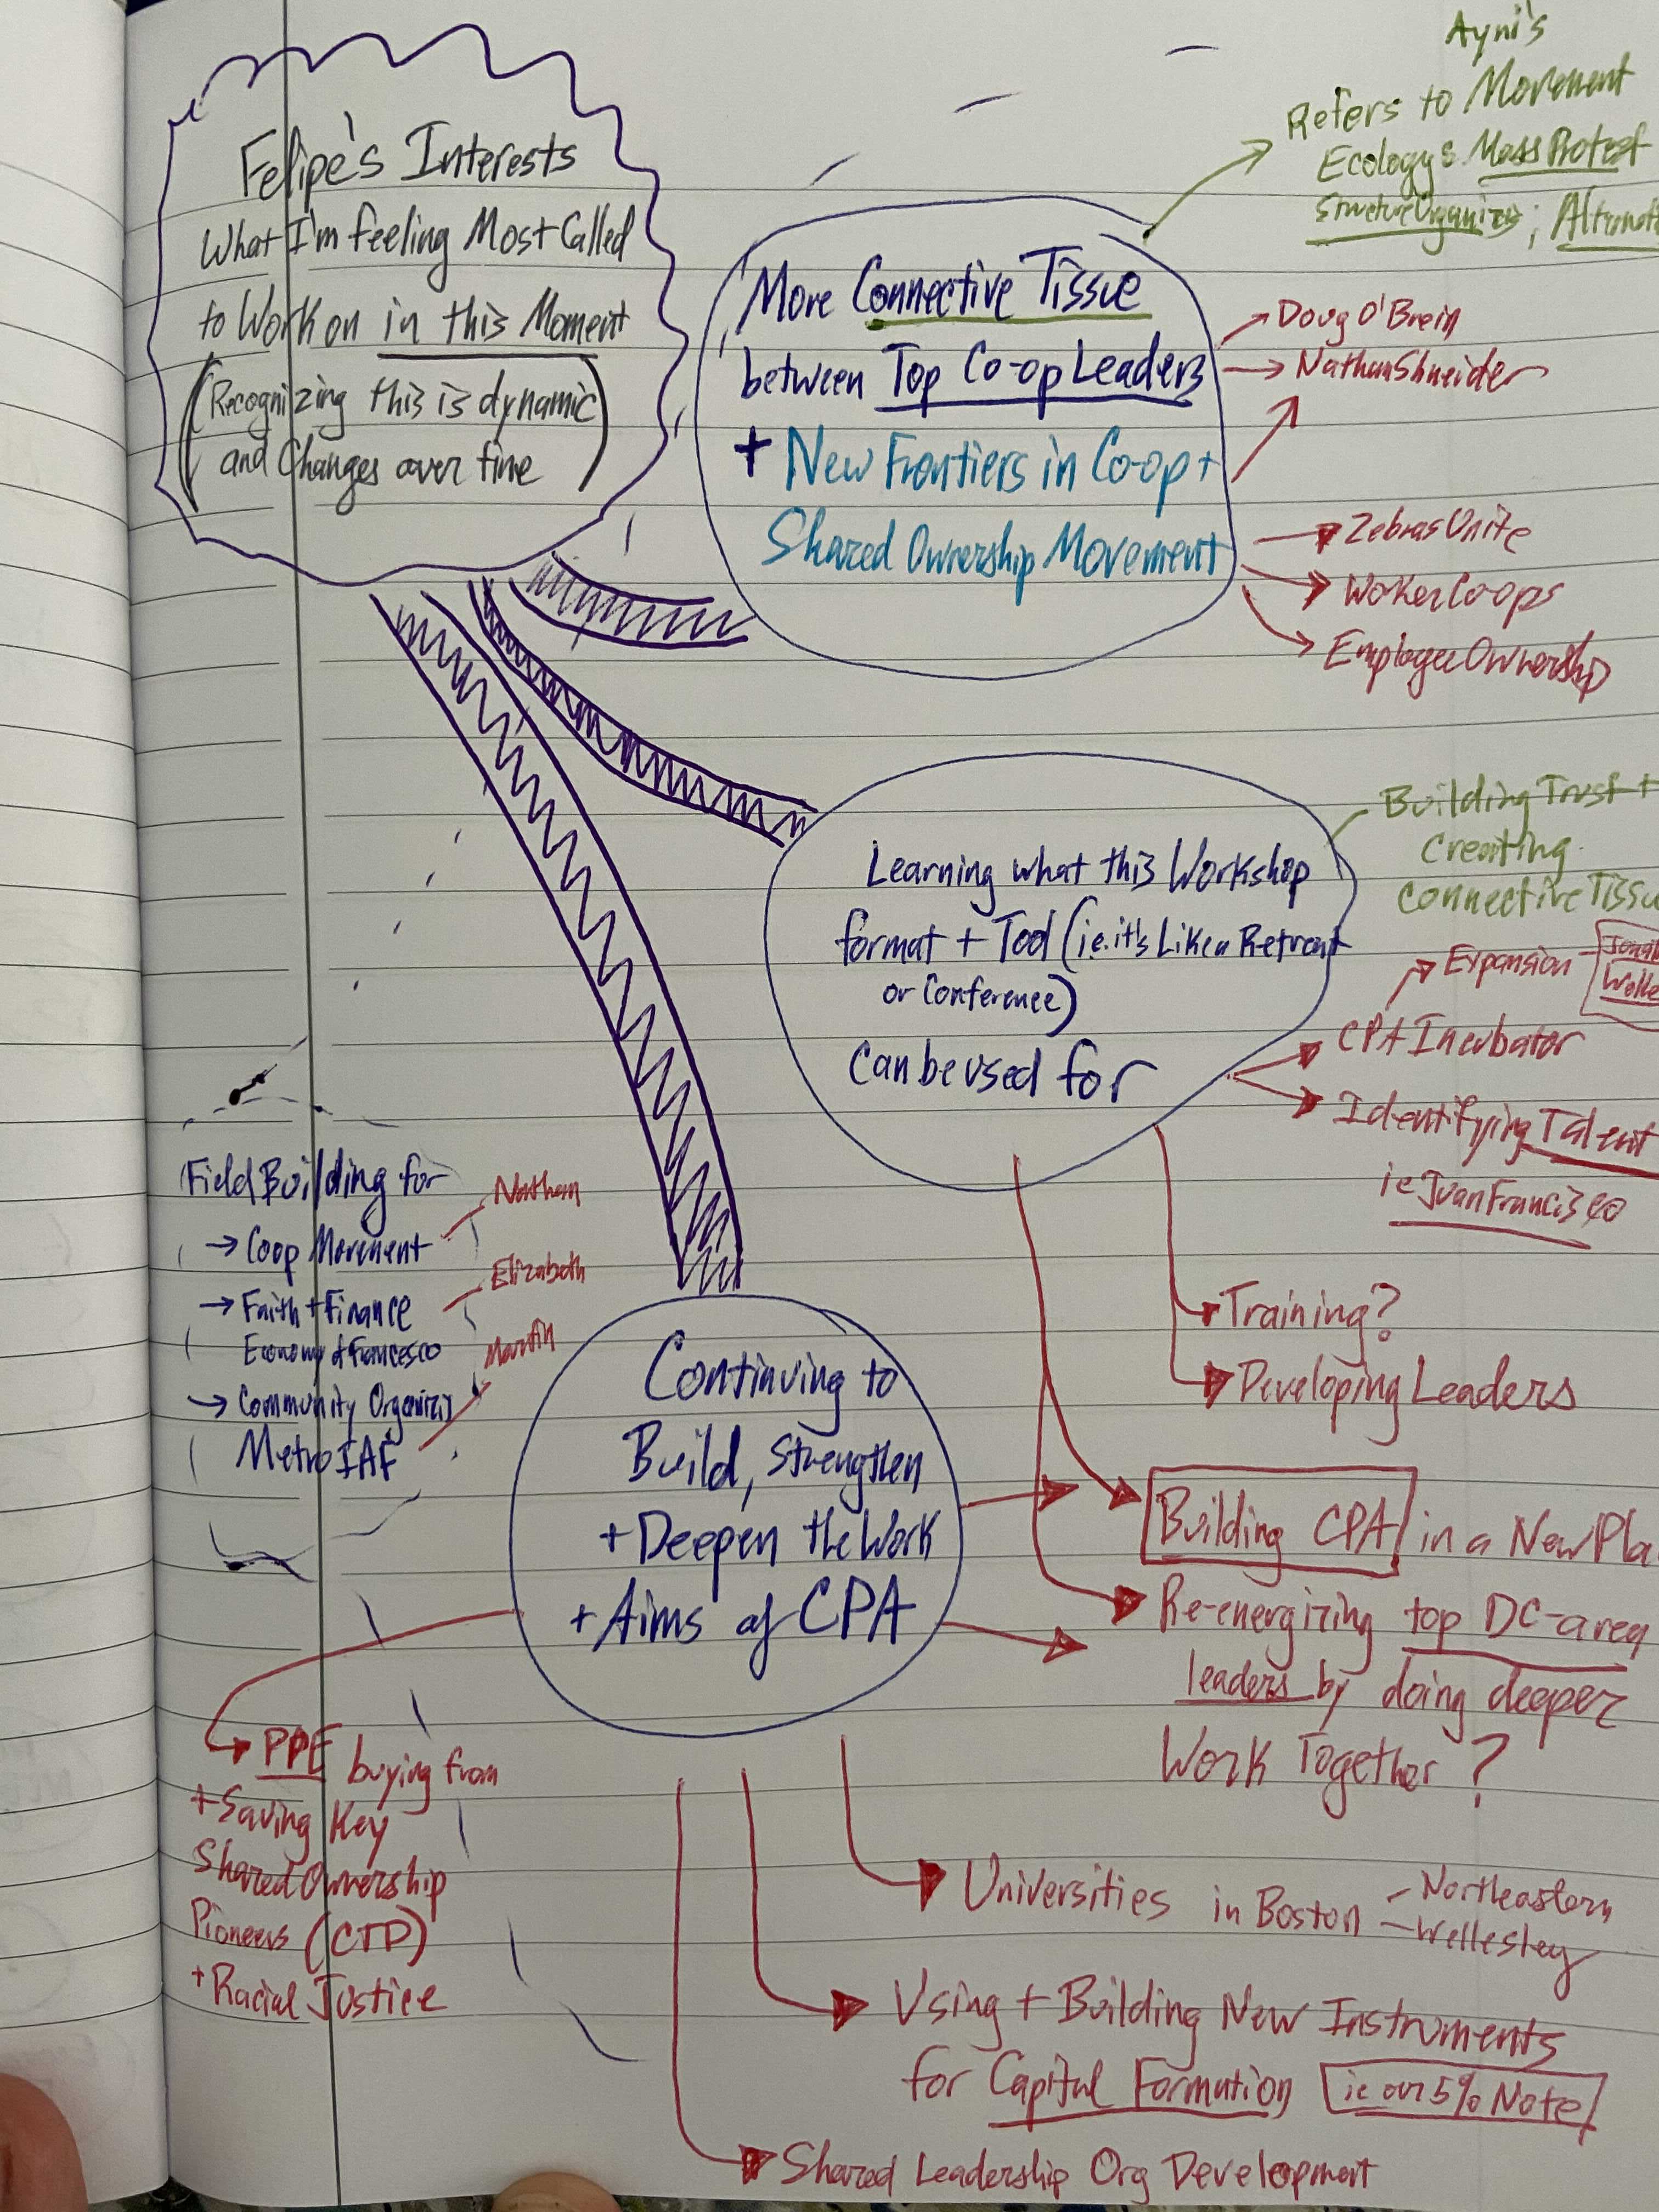 Felipe's Interests
What I'm feeling Most Called
to Work on in this Moment
(Recognizing this is dynamic
and Changes over time)
More Connective Tissue
between Top Co-op Leaders
+ New Frontiers in Co-op +
Shared Ownership Movement
Ayni's
Refers to Movement
Ecology & Mass Protest
Structure Organizing;
Doug O'Brein
Nathan Shneider
Zebras Unite
Woker Co-ops
Employee Ownership
Learning what this Workshop
format + Tool (i.e. it's Like a Retreat
or Conference)
Can be used for
Building Trust +
Creating
Connective Tissu
Expansion
CPA Incubator
Identifying Talent
ie Juan Francisco
Training?
Developing Leaders
Building CPA in a New Pla
Re-energizing top DC-area
leaders by doing deeper
Work Together?
Field Building for
→ Coop Movement
→ Faith + Finance
Elizabeth
Economy of Francesco
Martin
→ Community Organizing
Metro IAF
Continuing to
Build, Strengthen
+ Deepen the Work
+ Aims of CPA
PPE buying from
+ Saving Key
Shared Ownership
Pioneers (CTP)
+ Racial Justice
Universities in Boston - Northeastern
- Wellesley
Using + Building New Instruments
for Capital Formation ie our 5% Note
Shared Leadership Org Development